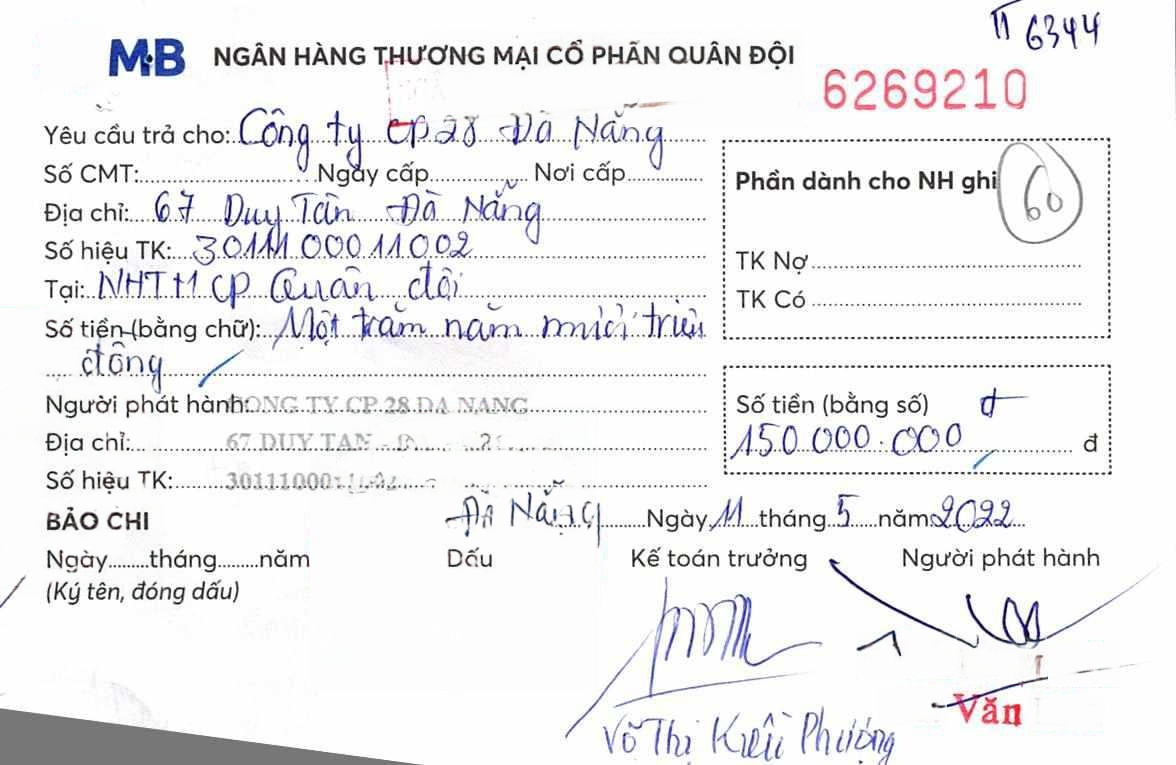 11 6344
MB NGÂN HÀNG THƯƠNG MẠI CỔ PHẦN QUÂN ĐỘI
6269210
Yêu cầu trả cho: Công ty CP 28 Đà Nẵng
Số CMT: Ngày cấp Nơi cấp
Địa chỉ: 67 Duy Tân Đà Nẵng
Số hiệu TK: 3011100011002
Tại: NHTM CP Quân đội
Số tiền (bằng chữ): Một trăm năm mươi triệu
đồng
Người phát hành: CONG TY CP 28 DA NANG
Địa chỉ: 67 DUY TAN
Số hiệu TK:
Phần dành cho NH ghi 60
TK Nợ
TK Có
Số tiền (bằng số) đ
150.000.000 đ
BẢO CHI
Đà Nẵng Ngày 11 tháng 5 năm 2022
Ngày tháng năm Dấu Kế toán trưởng Người phát hành
(Ký tên, đóng dấu)
Văn
Võ Thị Phượng